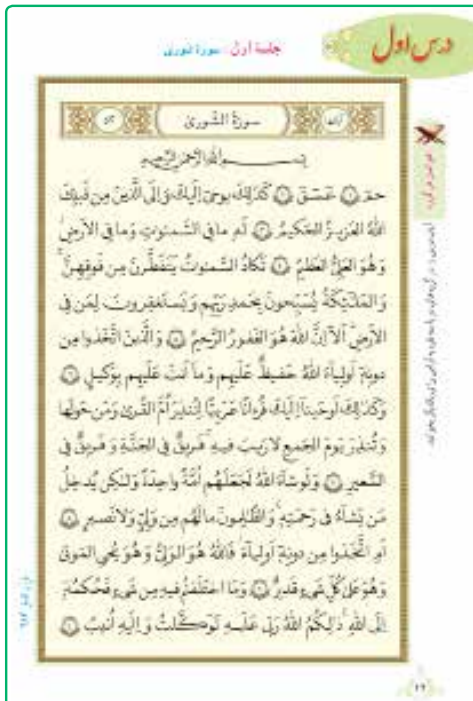 درس اول
جلسهٔ اول: سورهٔ شوری
سورة الشوری
حمٓ ۝ عٓسٓقٓ ۝ كَذٰلِكَ يوحي إِلَيكَ وَإِلَى الَّذينَ مِن قَبلِكَ
اللّٰهُ العَزيزُ الحَكيمُ ۝ لَهُ ما فِي السَّمٰوٰتِ وَما فِي الأَرضِ
وَهُوَ العَلِيُّ العَظيمُ ۝ تَكادُ السَّمٰوٰتُ يَتَفَطَّرنَ مِن فَوقِهِنَّ
وَالمَلٰئِكَةُ يُسَبِّحونَ بِحَمدِ رَبِّهِم وَيَستَغفِرونَ لِمَن فِي
الأَرضِ أَلا إِنَّ اللّٰهَ هُوَ الغَفورُ الرَّحيمُ ۝ وَالَّذينَ اتَّخَذوا مِن
دونِهِ أَولِياءَ اللّٰهُ حَفيظٌ عَلَيهِم وَما أَنتَ عَلَيهِم بِوَكيلٍ ۝
وَكَذٰلِكَ أَوحَينا إِلَيكَ قُرءانًا عَرَبِيًّا لِتُنذِرَ أُمَّ القُرىٰ وَمَن حَولَها
وَتُنذِرَ يَومَ الجَمعِ لا رَيبَ فيهِ فَريقٌ فِي الجَنَّةِ وَ فَريقٌ فِي
السَّعيرِ ۝ وَلَو شاءَ اللّٰهُ لَجَعَلَهُم أُمَّةً واحِدَةً وَلٰكِن يُدخِلُ
مَن يَشاءُ في رَحمَتِهِ وَالظّٰلِمونَ ما لَهُم مِن وَلِيٍّ وَلا نَصيرٍ ۝
أَمِ اتَّخَذوا مِن دونِهِ أَولِياءَ فَاللّٰهُ هُوَ الوَلِيُّ وَهُوَ يُحيِي المَوتىٰ
وَهُوَ عَلىٰ كُلِّ شَيءٍ قَديرٌ ۝ وَمَا اختَلَفتُم فيهِ مِن شَيءٍ فَحُكمُهُ
إِلَى اللّٰهِ ذٰلِكُمُ اللّٰهُ رَبّي عَلَيهِ تَوَكَّلتُ وَ إِلَيهِ أُنيبُ ۝